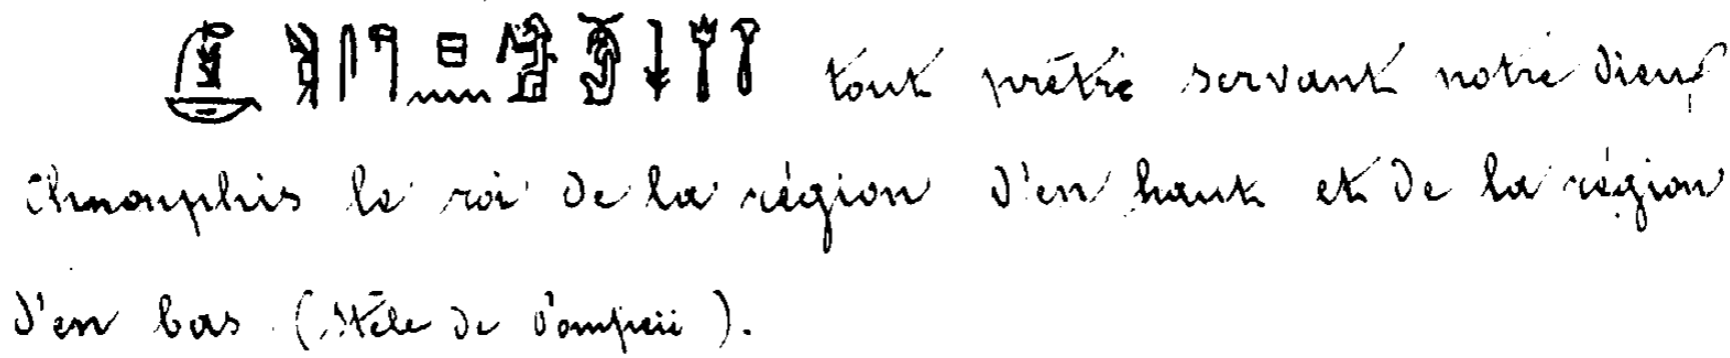 tout prêtre servant notre Dieu
Chnouphis le roi de la région d'en haut et de la région
d'en bas (Stèle de Pompeii).